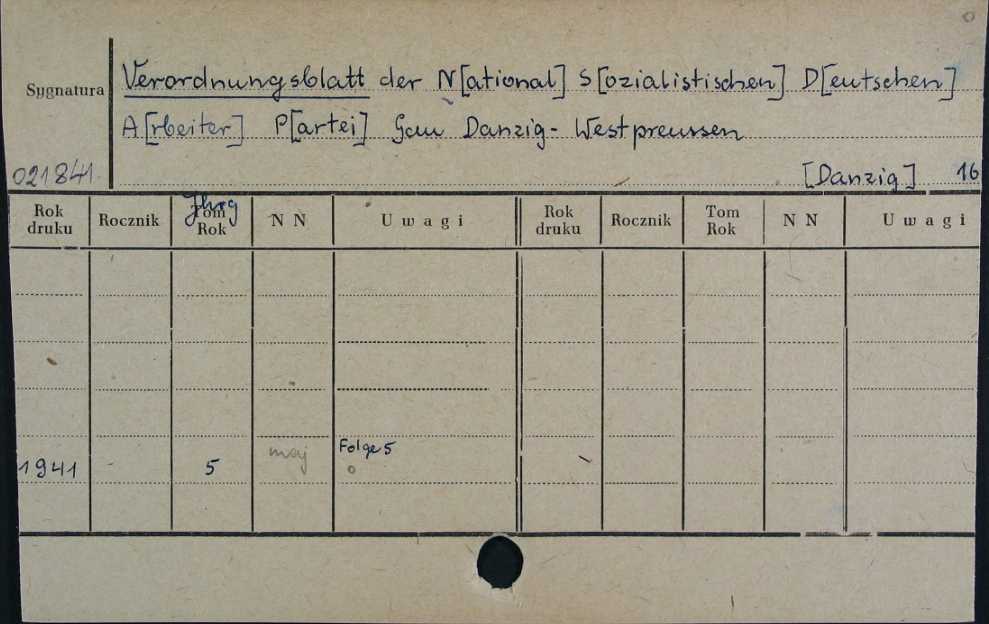 Sygnatura
Verordnungsblatt der N[ational] S[ozialistischen] D[eutschen]
A[rbeiter] P[artei] Gau Danzig-Westpreussen
021841. [Danzig] 16
Rok druku Rocznik Jhrg Tom Rok N N Uwagi Rok druku Rocznik Tom Rok N N Uwagi
1941 - 5 maj Folge 5